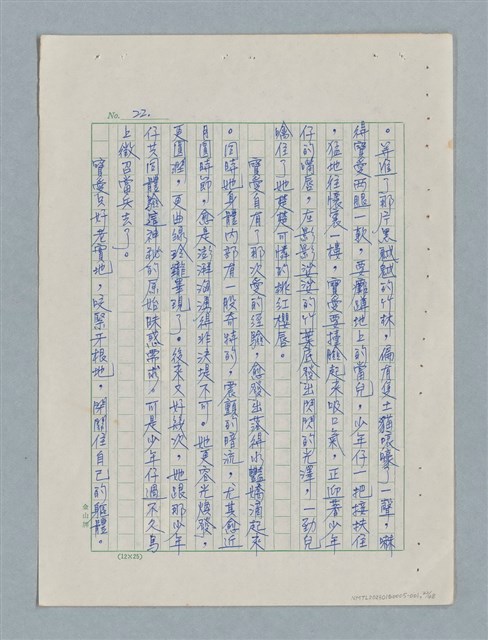 No. 22.
。弄進了那片黑黝黝的竹林，偏有隻土貓喂嚎了一聲，嚇
得寶愛两腿一軟，要癱蹲地上的當兒，少年仔一把接扶住
，猛地往懷裏一摟，寶愛要擡臉起來吸口氣，正迎著少年
仔的嘴唇，在影影婆婆的竹葉底發出閃閃的光澤，一勁兒
噙住了她楚楚可憐的桃紅櫻唇。
寶愛自有了那次愛的經驗，愈發出落得水豔嬌滴起來
。同時她身體內部有一股奇特的，震顫的暗流，尤其愈近
月圓時節，愈是澎湃洶湧得非決堤不可。她更容光煥發，
更圓潤，更曲線玲瓏畢現了。後來又好幾次，她跟那少年
仔共同體驗這神祕的原始昧惑嚐試。可是少年仔過不久馬
上徵召當兵去了。
寶愛只好老實地，咬緊牙根地，閉關住自己的軀體。
(12×25)